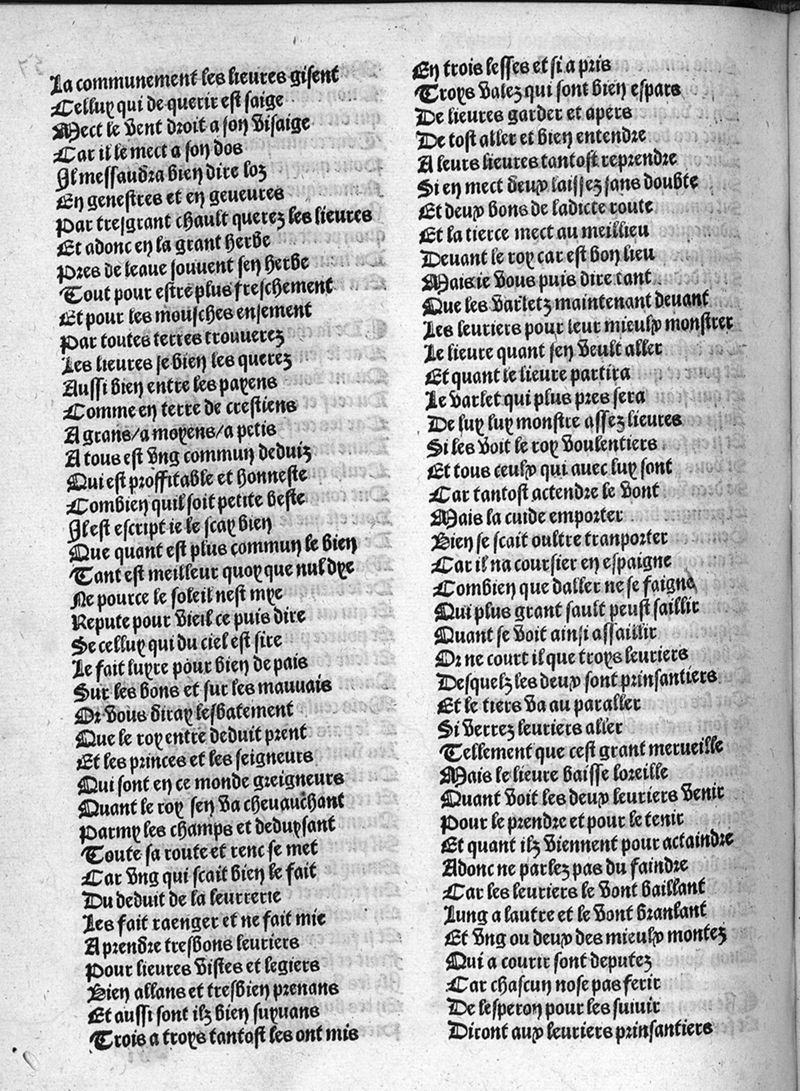 La communement les lieures gisent
Celluy qui de querir est saige
Mect le vent droit a son visaige
Car il le mect a son dos
Il messaudra bien dire loz
En genestres et en geueures
Par tresgrant chault querez les lieures
Et adonc en la grant herbe
Pres de leaue souuent sen herbe
Tout pour estre plus freschement
Et pour les mousches ensement
Par toutes terres trouuerez
Les lieures se bien les querez
Aussi bien entre les payens
Comme en terre de crestiens
A grans/a moyens/a petis
A tous est vng commun deduiz
Qui est proffitable et honneste
Combien quil soit petite beste
Il est escript ie le scay bien
Que quant est plus commun le bien
Tant est meilleur quoy que nul dye
Ne pource le soleil nest mye
Repute pour vieil ce puis dire
Se celluy qui du ciel est sire
Le fait luyre pour bien de pais
Sur les bons et sur les mauuais
Or vous diray lesbatement
Que le roy entre deduit prent
Et les princes et les seigneurs
Qui sont en ce monde greigneurs
Quant le roy sen va cheuauchant
Parmy les champs et deduysant
Toute sa route et renc se met
Car vng qui scait bien le fait
Du deduit de la leurrerie
Les fait raenger et ne fait mie
A prendre tresbons leuriers
Pour lieures vistes et legiers
Bien allans et tresbien prenans
Et aussi sont ilz bien suyuans
Trois a troys tantost les ont mis
En trois lesses et si a pris
Troys valez qui sont bien espars
De lieures garder et apers
De tost aller et bien entendre
A leurs lieures tantost reprendre
Si en mect deux laissez sans doubte
Et deux bons de ladicte route
Et la tierce mect au meillieu
Deuant le roy car est bon lieu
Mais ie vous puis dire tant
Que les varletz maintenant deuant
Les leuriers pour leur mieulx monstrer
Le lieure quant sen veult aller
Et quant le lieure partira
Le varlet qui plus pres sera
De luy luy monstre assez lieures
Si les voit le roy voulentiers
Et tous ceulx qui auec luy sont
Car tantost actendre le vont
Mais la cuide emporter
Bien se scait oultre tranporter
Car il na coursier en espaigne
Combien que daller ne se faigne
Qui plus grant sault peust saillir
Quant se voit ainsi assaillir
Or ne court il que troys leuriers
Desquelz les deux sont prinsantiers
Et le tiers va au paraller
Si verrez leuriers aller
Tellement que cest grant merueille
Mais le lieure baisse loreille
Quant voit les deux leuriers venir
Pour le prendre et pour le tenir
Et quant ilz viennent pour actaindre
Adonc ne parlez pas du faindre
Car les leuriers le vont baillant
Lung a lautre et le vont branlant
Et vng ou deux des mieulx montez
Qui a courir sont deputez
Car chascun nose pas ferir
De lesperon pour les suiuir
Diront aux leuriers prinsantiers